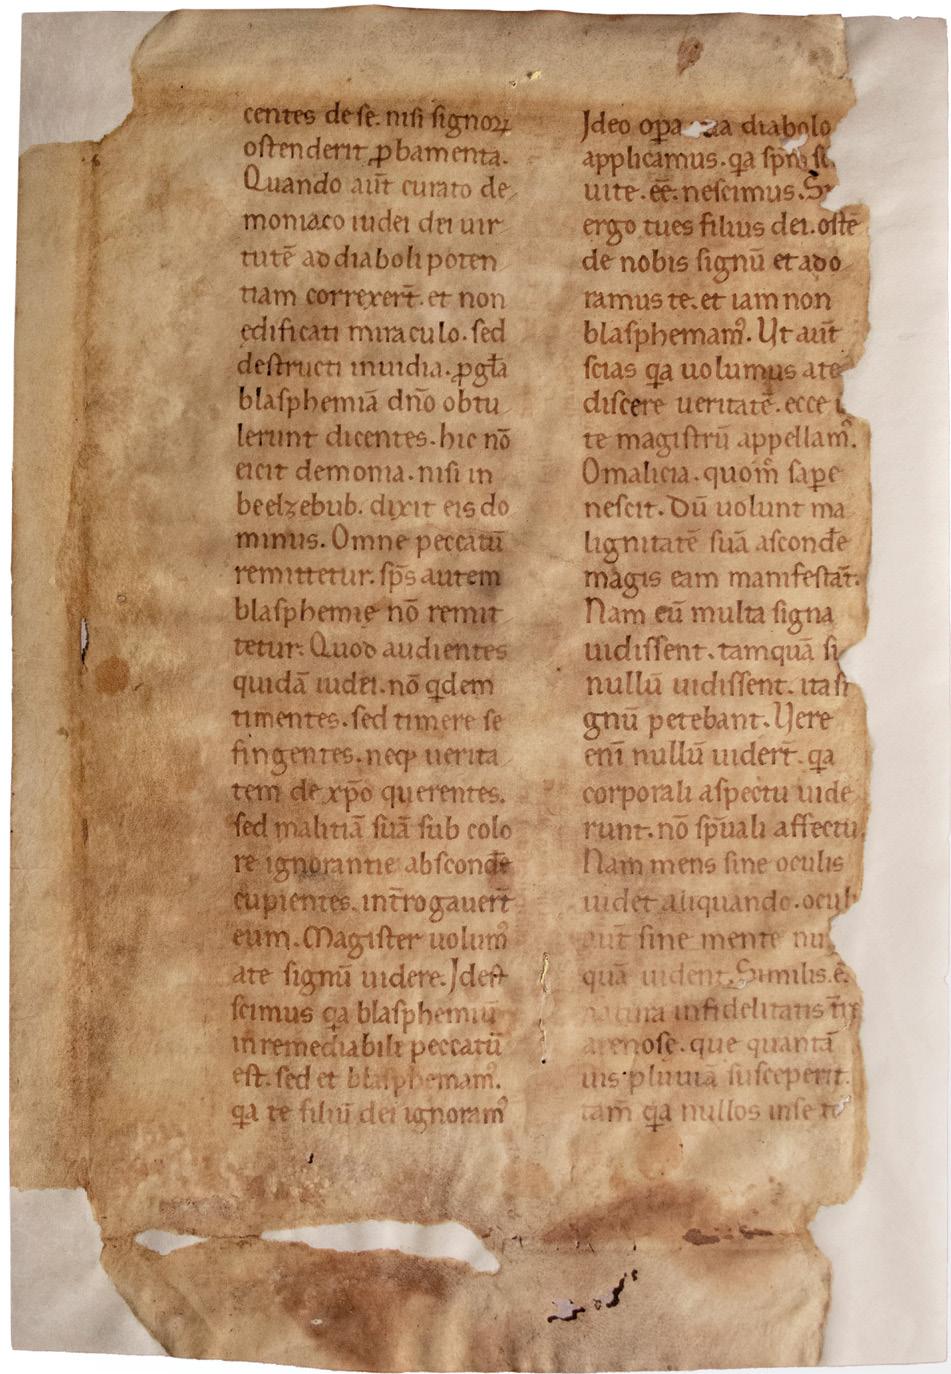 centes de se. nisi signoꝝ
ostenderit ꝓbamenta.
Quando aut̄ curato de
moniaco iudei dei uir
tutē ad diaboli poten
tiam correxert̄. et non
ędificati miraculo. sed
destructi inuidia. ꝓ gła
blasphemiā dn̄o obtu
lerunt dicentes. hic nō
eicit demonia. nisi in
beelzebub. dixit eis do
minus. Omne peccatū
remittetur. sp̄s autem
blasphemię nō remit
tetur. Quod audientes
quidā iudei. nō q̇dem
timentes. sed timere se
fingentes. neqꝫ uerita
tem de xp̄o querentes.
sed malitiā suā sub colo
re ignorantie absconde᷑
cupientes. int̄rogauert̄
eum. Magister uolum᷒
a te signū uidere. Idest
scimus qa blasphemiū
inremediabili peccatū
est. sed et blasphemam᷒.
qa te filiū dei ignoram᷒
Ideo opa tua diabolo
applicamus. qa sp̄m
uite. eē. nescimus. Si
ergo tu es filius dei. ostē
de nobis signū et ado
ramus te. et iam non
blasphemam᷒. Ut aut̄
scias qa uolumus a te
discere ueritatē. ecce
te magistrū appellam᷒.
O malicia. quom̊ sape
nescit. Dū uolunt ma
lignitatē suā asconde᷑
magis eam manifestat̄.
Nam cū multa signa
uidissent. tamquā si
nullū uidissent. ita si
gnū petebant. Uere
eni᷒ nullū uidert̄. qa
corporali aspectu uide
runt. nō sp̄uali affectu.
Nam mens sine oculis
uidet aliquando. oculi
aut̄ sine mente nū
quā uident. Similis. ē.
natura infidelitatis tr̄ę
arenose. que quantā
uis pluuiā susceperit.
tam̄ qa nullos in se